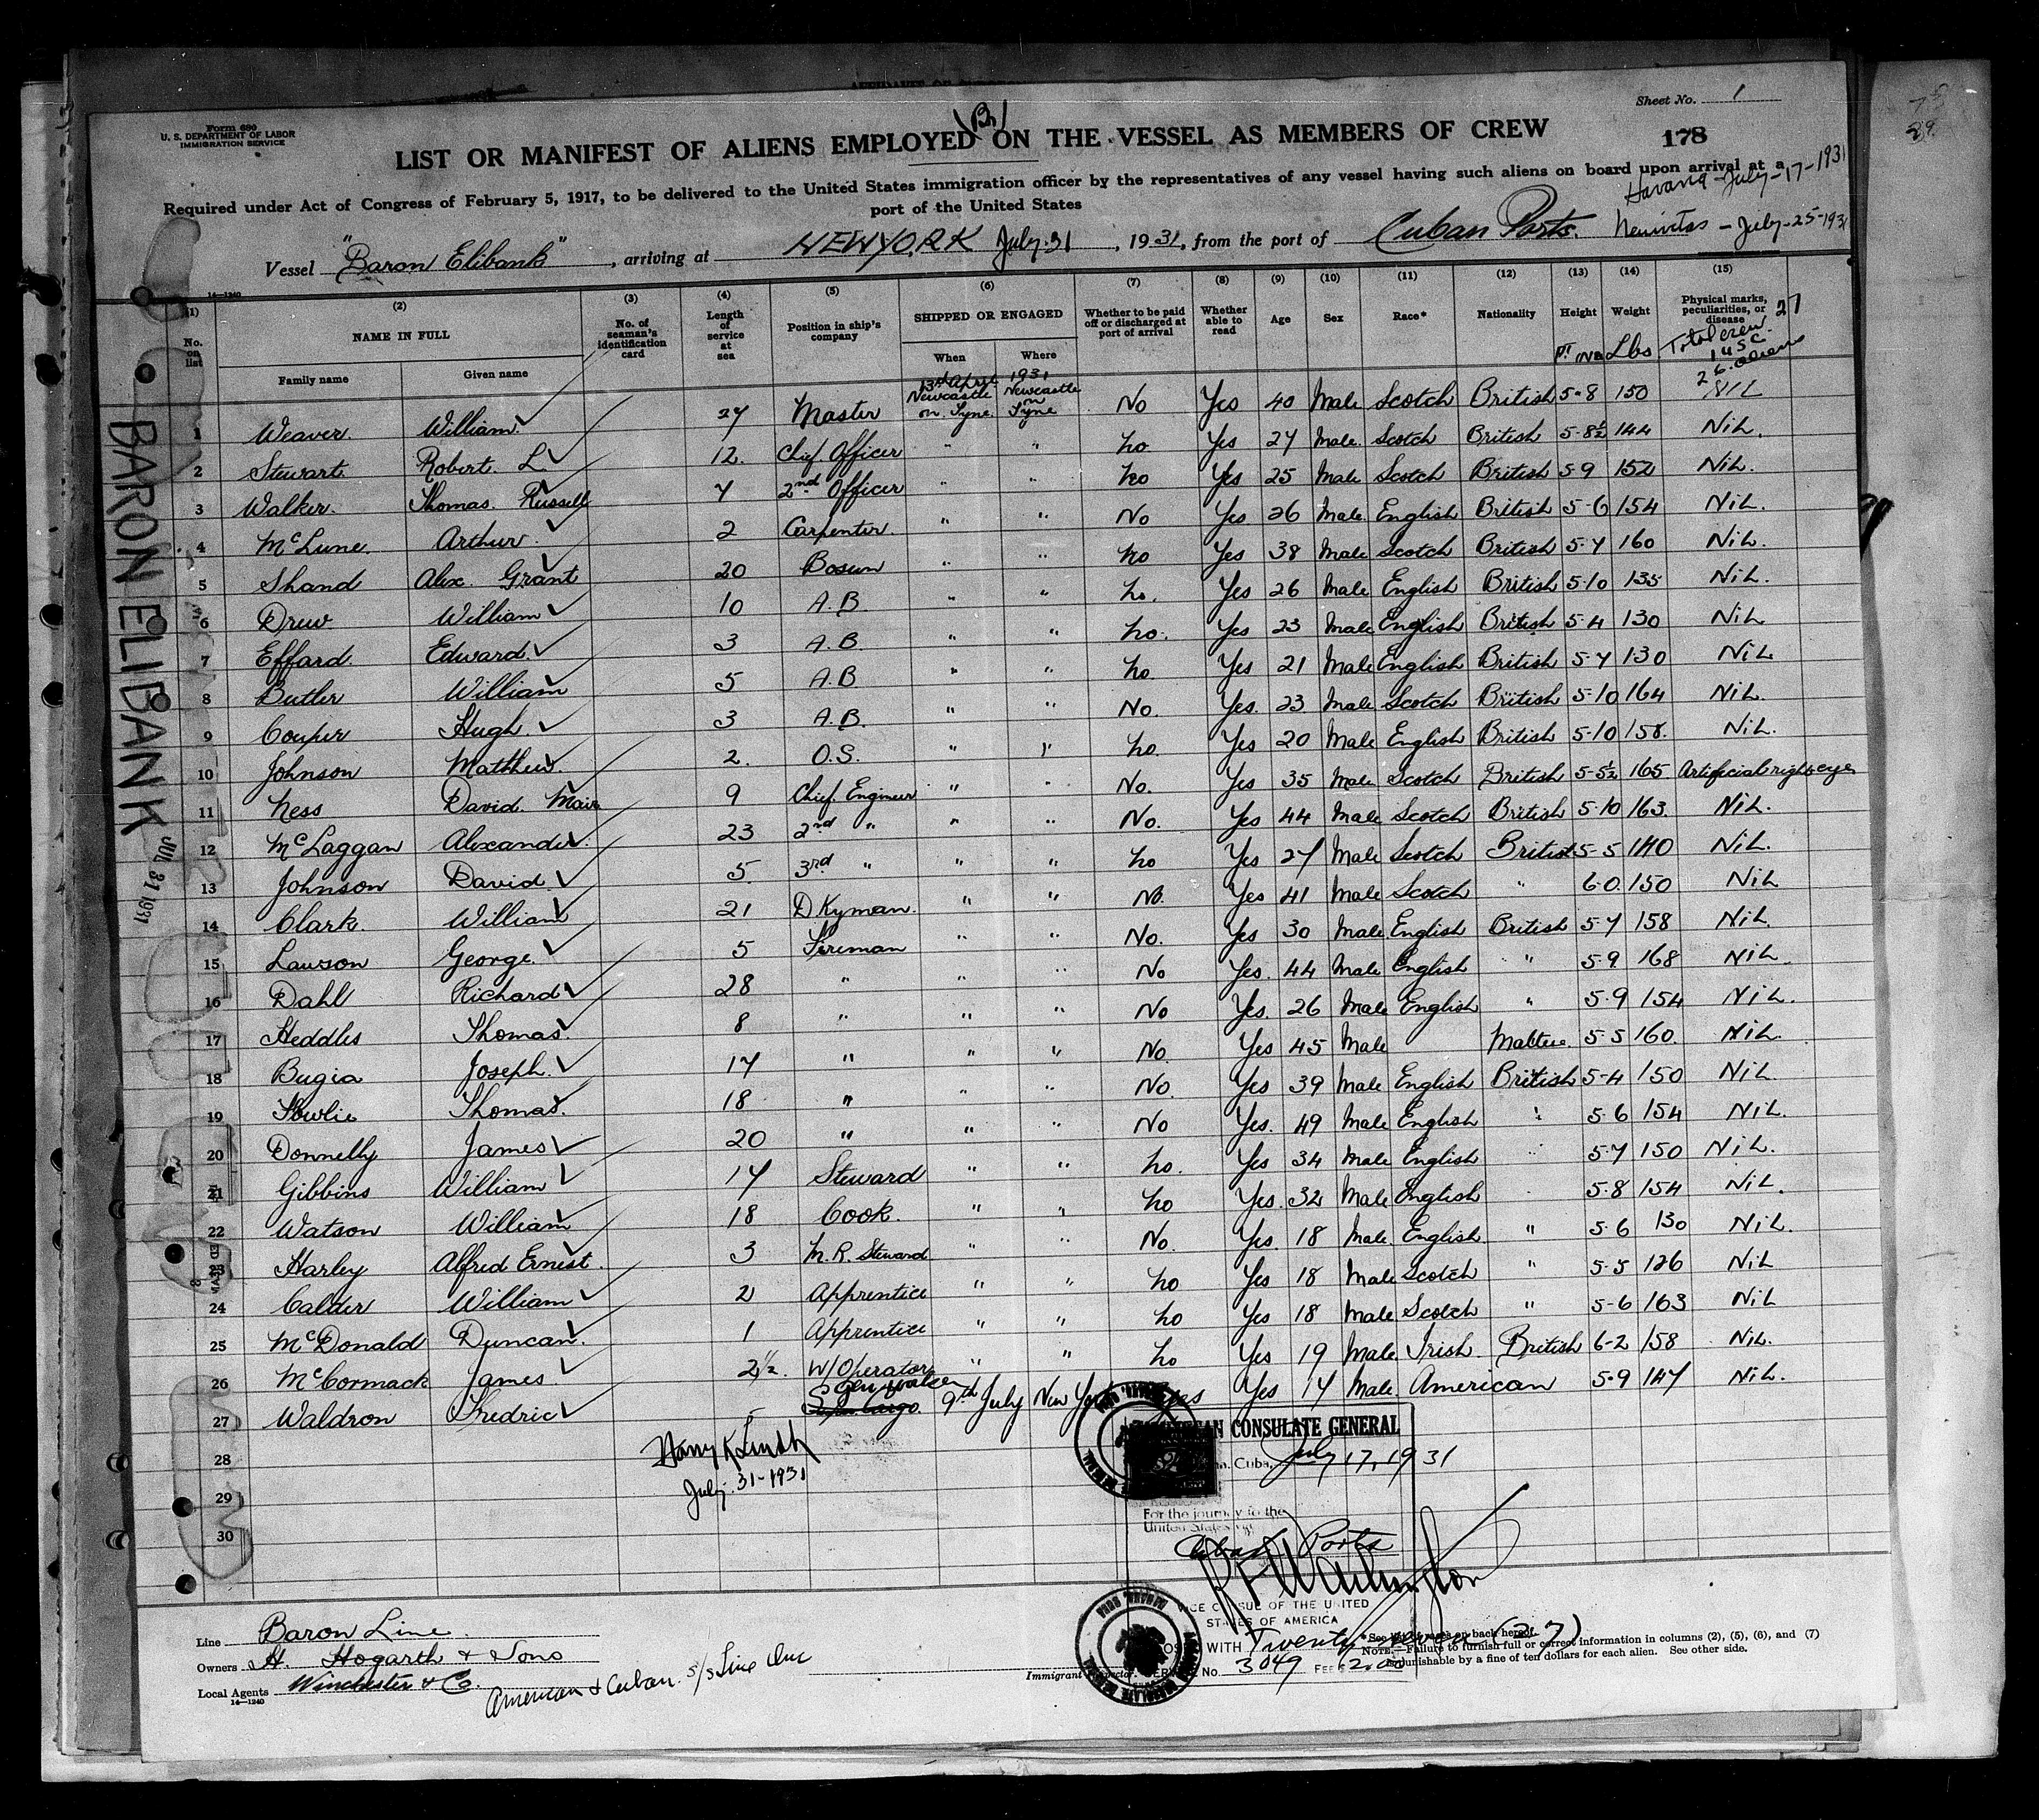 Sheet No. 1
Form 680
U. S. DEPARTMENT OF LABOR
IMMIGRATION SERVICE
(Br)
178
LIST OR MANIFEST OF ALIENS EMPLOYED ON THE VESSEL AS MEMBERS OF CREW
Required under Act of Congress of February 5, 1917, to be delivered to the United States immigration officer by the representatives of any vessel having such aliens on board upon arrival at a
port of the United States
Havana - July - 17 - 1931
Nuevitas - July - 25 - 1931
Vessel "Baron Elibank", arriving at NEW YORK July 31, 1931, from the port of Cuban Ports.
14-1240
(1) (2) (3) (4) (5) (6) (7) (8) (9) (10) (11) (12) (13) (14) (15)
No. on list NAME IN FULL No. of seaman's identification card Length of service at sea Position in ship's company SHIPPED OR ENGAGED Whether to be paid off or discharged at port of arrival Whether able to read Age Sex Race* Nationality Height Weight Physical marks, peculiarities, or disease
Family name Given name When Where
Ft Ins Lbs
Total crew 27
1 USC
26 aliens
1 Weaver. William 27 Master 13th April 1931 Newcastle on Tyne. Newcastle on Tyne No Yes 40 Male Scotch British 5-8 150 NIL
2 Stewart. Robert. L. 12. Chief Officer " " No Yes 27 Male. Scotch British 5-8½ 144 NiL.
3 Walker. Thomas. Russell 7 2nd Officer " " No Yes 25 Male Scotch British 5-9 152 NiL.
4 McLune. Arthur. 2 Carpenter. " " No Yes 26 Male. English British 5-6 154 NiL.
5 Shand Alex. Grant 20 Bosun " " No Yes 38 Male Scotch British 5-7 160 NiL.
6 Drew William 10 A.B. " " No. Yes 26 Male English British 5-10 135 NiL.
7 Effard. Edward. 3 A.B. " " No. Yes 23 Male English British 5-4 130 NiL
8 Butler William 5 A.B " " No Yes 21 Male English British 5-7 130 NiL
9 Couper Hugh 3 A.B. " " No. Yes. 23 Male Scotch British 5-10 164 NiL.
10 Johnson Matthew. 2. O.S. " " No Yes 20 Male English British 5-10 158. NiL.
11 Ness David. Mair 9 Chief. Engineer " " No. Yes 35 Male Scotch British 5-5½ 165 Artificial right eye
12 McLaggan Alexander. 23 2nd " " " No. Yes 44 Male Scotch British 5-10 163. NiL.
13 Johnson David. 5. 3rd " " " No Yes 27 Male Scotch British 5-5 140 NiL.
14 Clark. William 21 DKyman. " " No. Yes 41 Male Scotch " 6-0. 150 NiL
15 Lawson George. 5 Fireman " " No. Yes 30 Male English British 5-7 158 NiL.
16 Dahl Richard 28 " " " No Yes. 44 Male English " 5-9 168 NiL.
17 Heddles Thomas. 8 " " " No Yes. 26 Male English " 5-9 154 NiL.
18 Bugia Joseph. 17 " " " No. Yes 45 Male Maltese. 5-5 160. NiL.
19 Fowlie Thomas. 18 " " " No. Yes 39 Male English British 5-4 150 NiL.
20 Donnelly James 20 " " " No Yes. 49 Male English " 5-6 154 NiL.
21 Gibbins William 17 Steward " " No. Yes 34 Male English " 5-7 150 NiL.
22 Watson William 18 Cook. " " No Yes. 32 Male English " 5-8 154 NiL.
23 Harley Alfred Ernest. 3 M.R. Steward " " No. Yes. 18 Male. English. " 5-6 130 NiL.
24 Calder William 2 Apprentice " " No Yes 18 Male Scotch " 5-5 126 NiL
25 McDonald Duncan. 1 Apprentice " " No Yes 18 Male Scotch " 5-6 163 NiL
26 McCormack James 2½. W/Operator " " No Yes 19 Male. Irish British 6-2 158 NiL.
27 Waldron Fredric 9th July New York Yes Yes 17 Male American 5-9 147 NiL.
28
29
30
July. 31-1931
BARON ELIBANK
JUL 31 1931
CONSULATE GENERAL
Cuba, July 17, 1931
For the journey to the
United States via
Cuban Ports
VICE CONSUL OF THE UNITED
STATES OF AMERICA
WITH Twenty seven (27)
No. 3049 FEE $2.00
Line Baron Line.
Owners H. Hogarth & Sons
Local Agents Winchester & Co.
14-1240
American & Cuban. s/s Line Inc
Immigrant Inspector.
NOTE.—Failure to furnish full or correct information in columns (2), (5), (6), and (7)
is punishable by a fine of ten dollars for each alien. See other side.